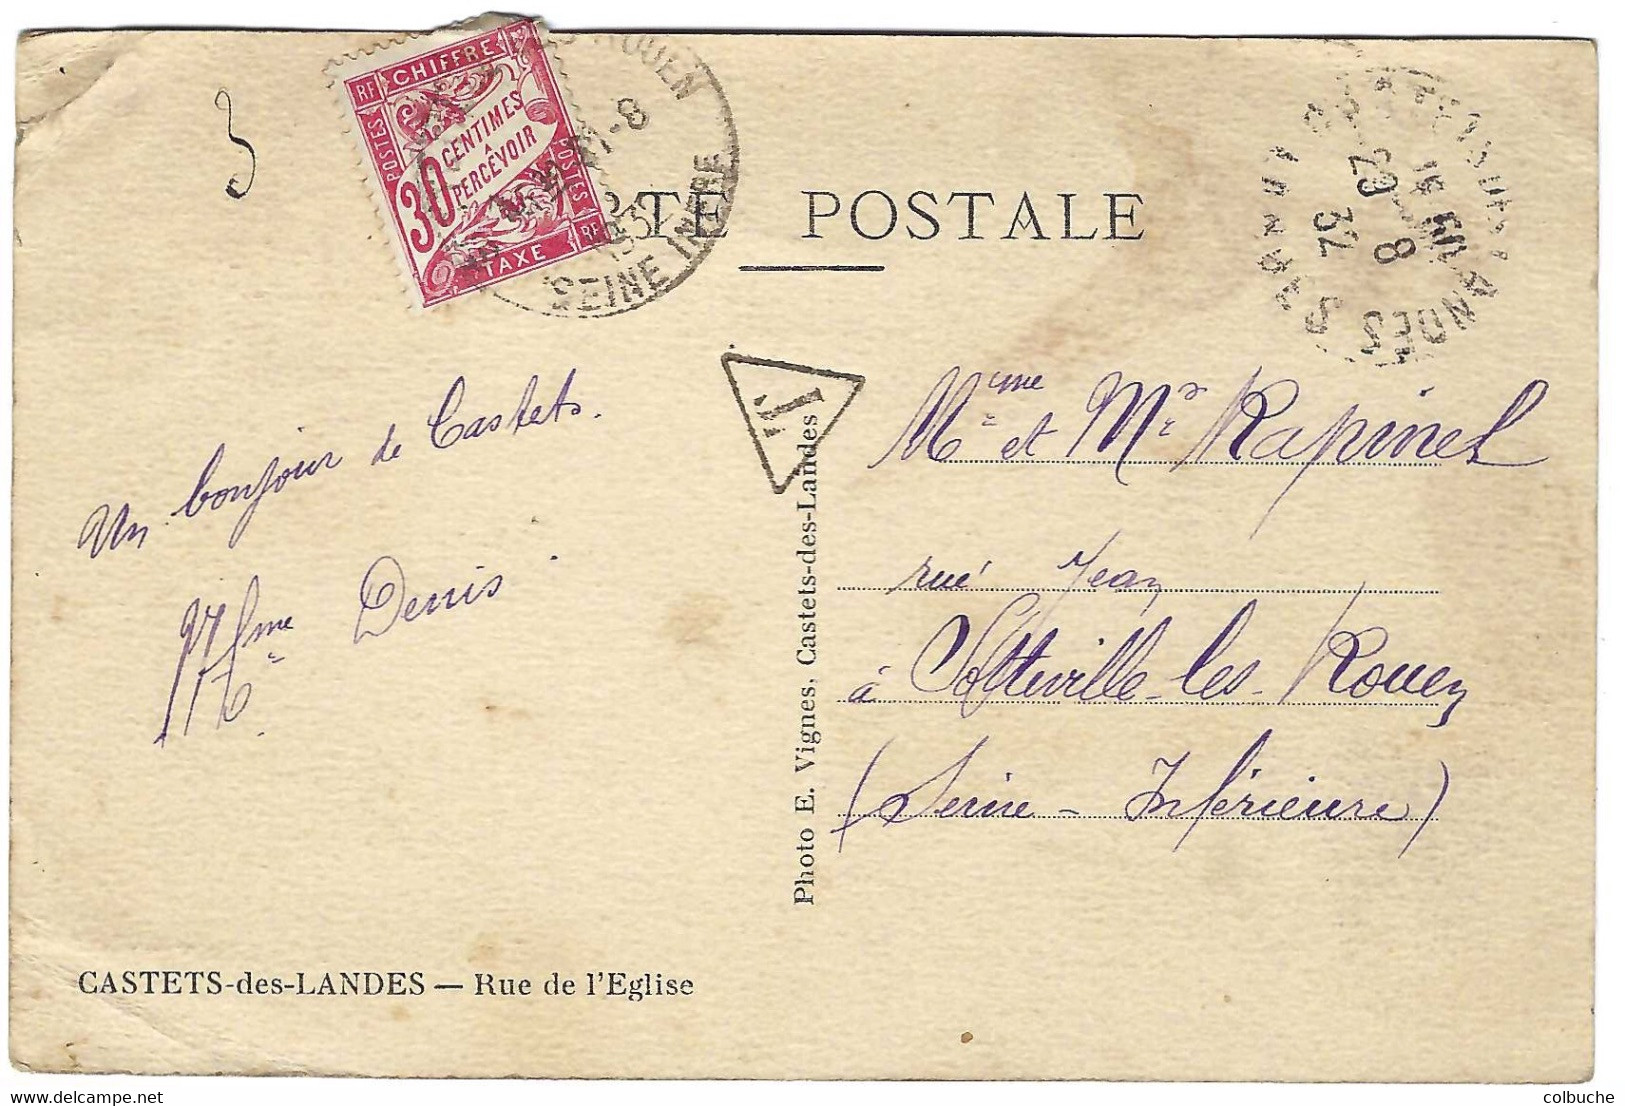 RF CHIFFRE
POSTES
30 CENTIMES
A
PERCEVOIR
POSTES
TAXE RF
ROUEN
-8
SEINE INFRE
RTE POSTALE
LANDES
29
8
32
T
Un bonjour de Castets.
Denis
Mme et Mr Rapinel
rue Jean
à Sotteville-les-Rouen
(Seine-Inférieure)
Photo E. Vignes, Castets-des-Landes
CASTETS-des-LANDES — Rue de l'Eglise
colbuche